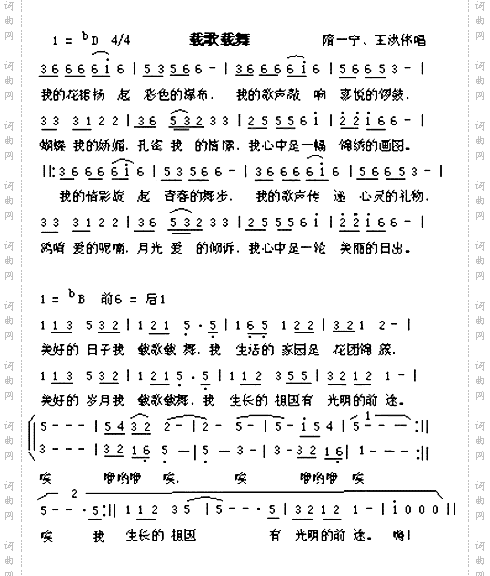 1 = ᵇD 4/4 载歌载舞 隋一宁、王洪伟唱
3 6 6 6 6 i 6 | 5 3 5 6 6 - | 3 6 6 6 6 i 6 | 5 6 6 5 3 - |
我的花裙扬 起 彩色的瀑布, 我的歌声敲 响 喜悦的锣鼓,
3 3 3 1 2 2 | 3 6 5 3 2 3 3 | 5 6 5 6 5 6 i | 2 2 i 6 6 - |
蝴蝶 我的娇媚, 孔雀 我 的情愫, 我心中是一幅 锦绣的画图。
||: 3 6 6 6 6 i 6 | 5 3 5 6 6 - | 3 6 6 6 6 i 6 | 5 6 6 5 3 - |
我的情彩旋 起 青春的舞步, 我的歌声传 递 心灵的礼物,
3 3 3 1 2 2 | 3 6 5 3 2 3 3 | 5 6 5 6 5 6 i | 2 2 i 6 6 - |
爱的呢喃, 月光 爱 的倾诉, 我心中是一轮 美丽的日出。
1 = ᵇB 前6 = 后1
1 1 3 5 3 2 | 1 2 1 5 · 5 | 1 6 5 1 2 2 | 3 2 1 2 - |
美好的 日子我 载歌载 舞, 我 生活的 家园是 花团锦 簇,
1 1 3 5 3 2 | 1 2 1 5 · 5 | 1 1 2 3 5 5 | 3 2 1 2 1 - |
美好的 岁月我 载歌载舞, 我 生长的 祖国有 光明的前 途。
5 - - - | 5 4 3 2 2 - | 2 - 5 - | 5 - i 5 4 | 5 - - - :||
3 - - - | 3 2 1 6 5 - | 5 - 3 - | 3 - 3 2 1 6 | 1 - - - :||
唉 咿哟咿 唉, 唉 咿哟咿 唉
5 - - · 5 :|| 1 1 2 3 5 5 | 5 - - · 5 | 3 2 1 2 1 - | i 0 0 0 ||
唉 我 生长的 祖国 有 光明的前 途。
词曲网